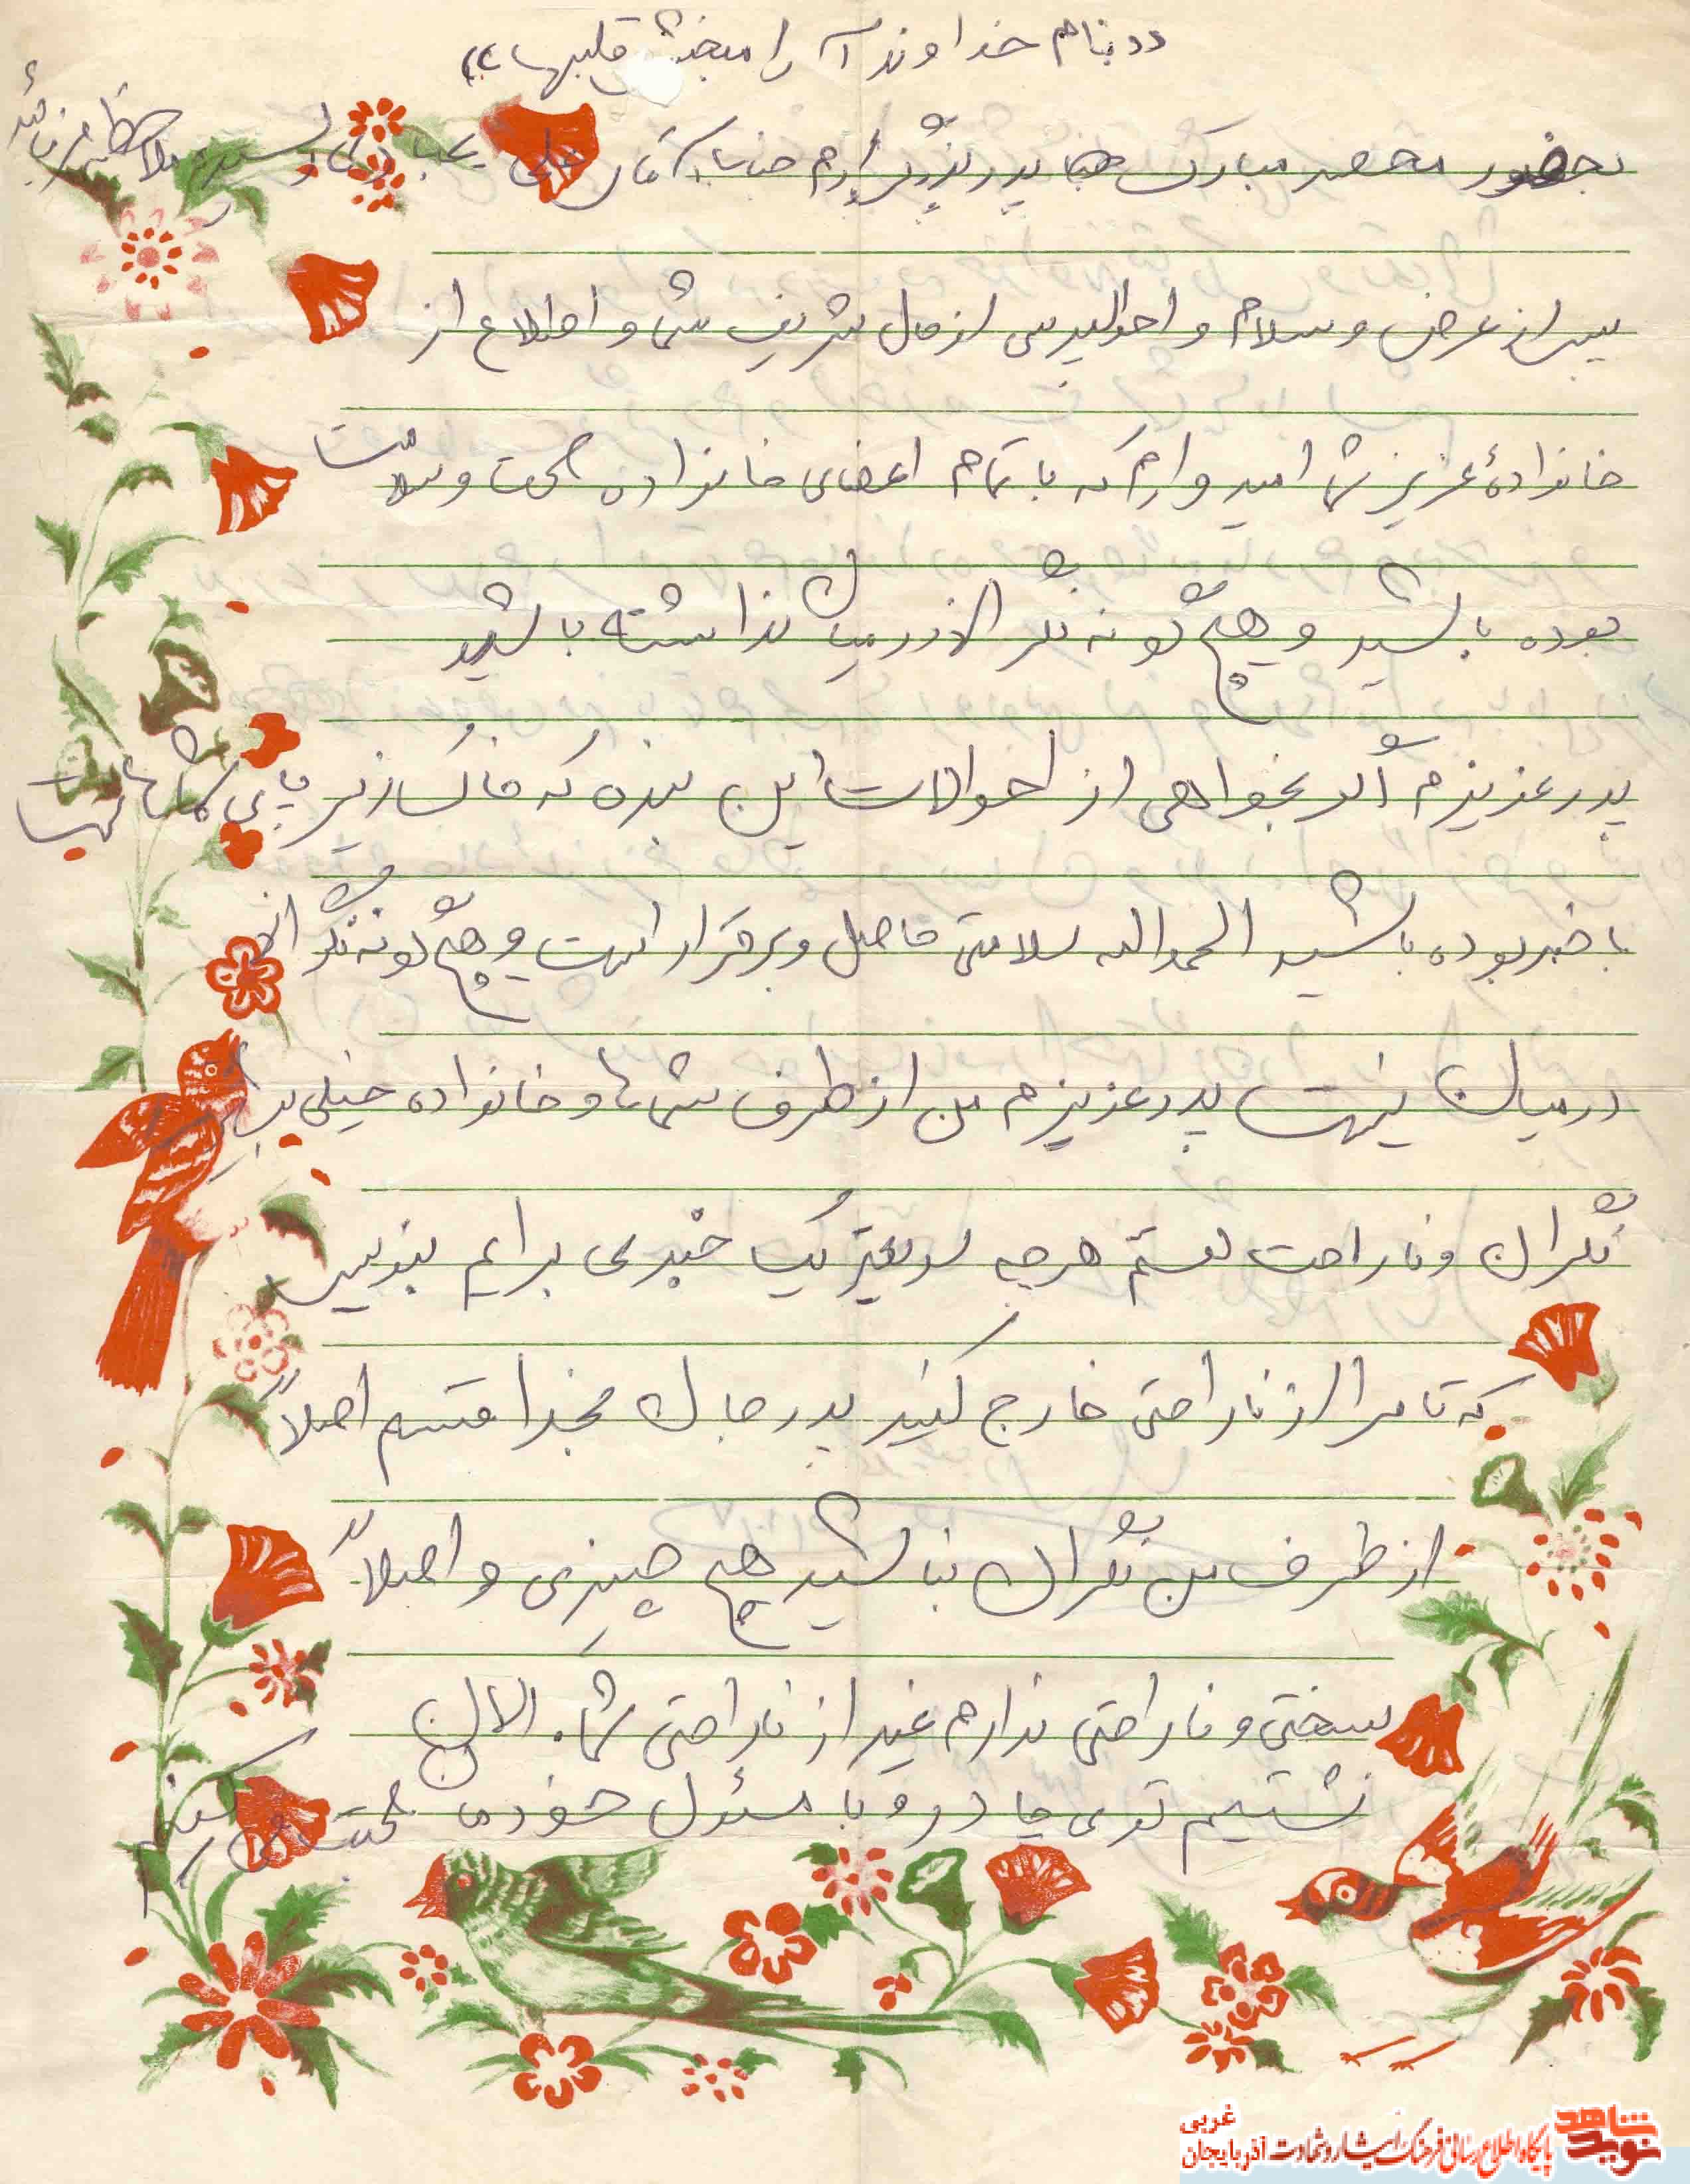 «بنام خداوند آرامبخش قلبها»
بحضور محضر مبارک پدر بزرگوارم جناب آقای علی رسیده ملاحظه فرمائید
پس از عرض و سلام و احوالپرسی از حال شریف شما و اطلاع از
خانوادهٔ عزیز شما امیدوارم که با تمام اعضای خانواده صحت و سلامت
بوده باشید و هیچ گونه نگرانی در میان نداشته باشید
پدر عزیزم اگر بخواهی از احوالات این بنده که خاکسار زیر پای شماهاست
باخبر بوده باشید الحمدالله سلامتی حاصل و برقرار است و هیچ گونه نگرانی
در میان نیست پدر عزیزم من از طرف شماها و خانواده خیلی
نگران و ناراحت هستم هر چه سریعتر یک خبری برایم بنویس
که تا مرا از ناراحتی خارج کنید پدر جان بخدا قسم اصلاً
از طرف من نگران نباشید هیچ چیزی و اصلاً
سختی و ناراحتی ندارم غیر از ناراحتی شما. الان
نشستیم توی چادر و با مسئول خودما صحبت می کنیم
نوید شاهد
پایگاه اطلاع رسانی فرهنگ ایثار و شهادت آذربایجان غربی